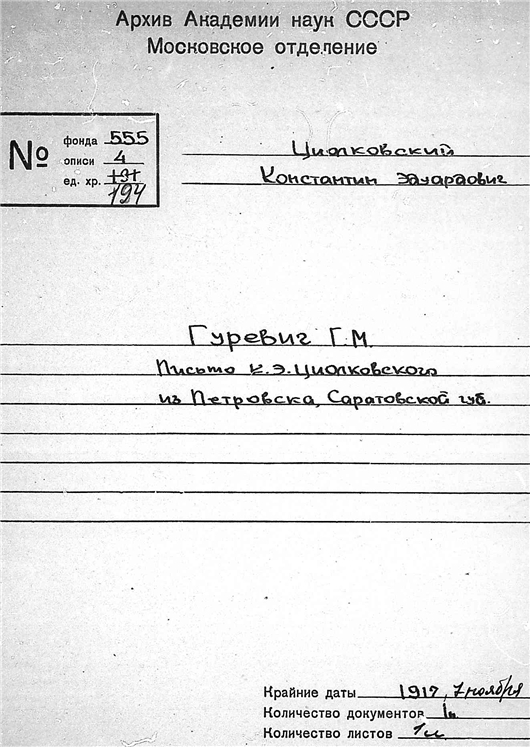 Архив Академии наук СССР
Московское отделение
№
фонда 555
описи 4
ед. хр. 191
194
Циолковский
Константин Эдуардович
Гуревич Г.М.
Письмо К.Э.Циолковского
из Петровска, Саратовской губ.
Крайние даты 1917, 7 ноября
Количество документов 1
Количество листов 1л